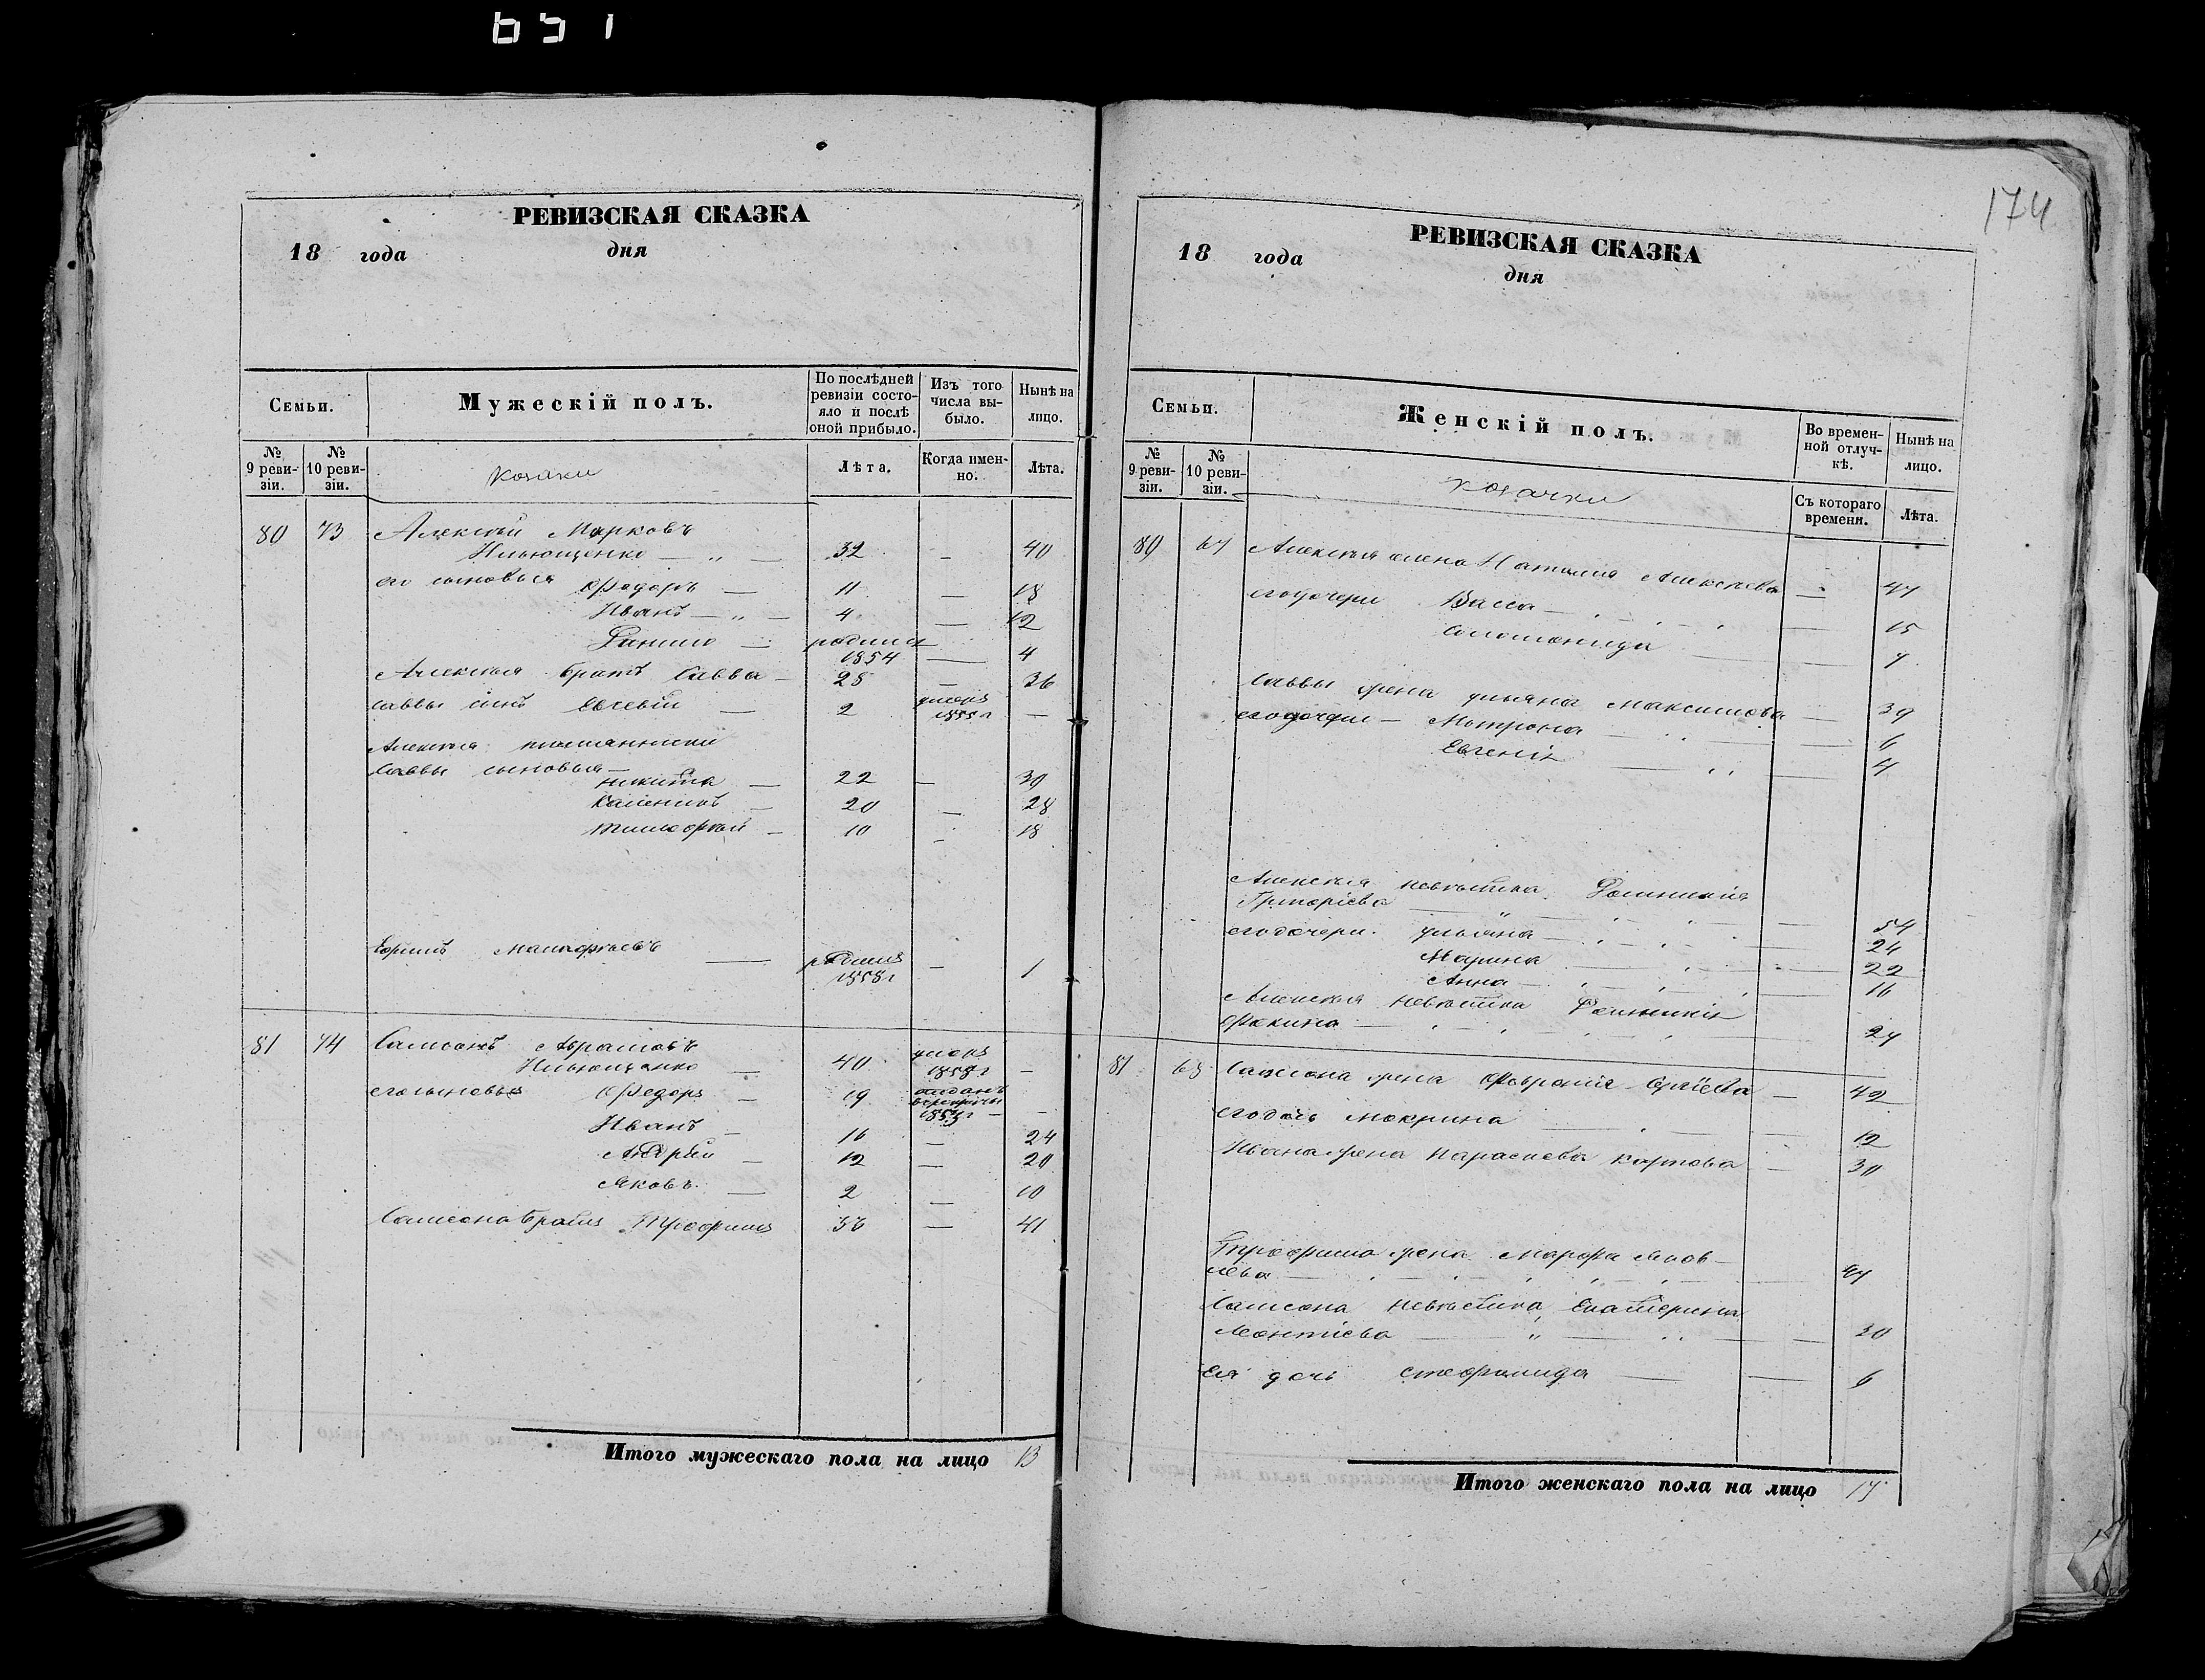 651
174
РЕВИЗСКАЯ СКАЗКА
18 года дня
Семьи.
Мужескій полъ.
По послѣдней ревизіи состо-
яло и послѣ
оной прибыло.
Изъ того
числа вы-
было.
Нынѣ на
лицо.
№ 9 реви-
зіи.
№ 10 реви-
зіи.
Козаки
Лѣта.
Когда имен-
но.
Лѣта.
80 73 Алексѣй Марковъ
Ильющенко — „ — 32 — 40
его сыновья Федоръ — 11 — 18
Иванъ — „ — 4 — 12
Данило — родился
1854 — 4
Алексѣя братъ Савва — 28 — 36
Саввы сынъ Евсевій — 2 умеръ
1855 г —
Алексѣя племянники
Саввы сыновья —
Никита — 22 — 30
— 20 — 28
Тимофей — 10 — 18
Ефимъ — родился
1858 г — 1
81 74 Самсонъ Абрамовъ
Ильющенко — 40 умеръ
1858 г —
его сыновья Федоръ — 19 отданъ
в рекруты
1853 г — —
Иванъ — 16 — 24
Андрей — 12 — 20
Яковъ — 2 — 10
Самсона братъ Трофимъ 33 — 41
Итого мужескаго пола на лицо 13
РЕВИЗСКАЯ СКАЗКА
18 года дня
Семьи.
Женскій полъ.
Во времен-
ной отлуч-
кѣ.
Нынѣ на
лицо.
№ 9 реви-
зіи.
№ 10 реви-
зіи.
Козачки
Съ котораго
времени.
Лѣта.
80 67 Алексѣя жена Наталія Алексѣева — 47
его дочери Васса — 15
Соломонида — 7
Саввы жена Ульяна Максимова — 39
его дочери — Матрона — 6
Евгенія — 4
Алексѣя невѣстка Домникія
Григоріева — 54
его дочери Ульяна — 24
Марина — 22
Анна — 16
Алексѣя невѣстка Домникія
Фокина — 24
81 68 Самсона жена Февронія Сергіева — 42
его дочь Мокрина — 12
Ивана жена Параскева Карпова — 30
Трофима жена Марфа Яков-
лева — 47
Самсона невѣстка Екатерина
Леонтіева — „ — 30
Ея дочь Степанида — 6
Итого женскаго пола на лицо 17